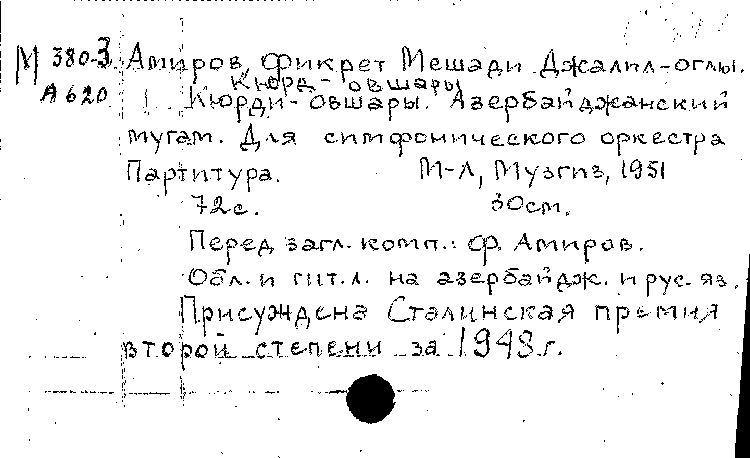 М 380-3 Амиров, Фикрет Мешади Джалил-оглы.
Кюрд-овшары
А 620 Кюрди-овшары. Азербайджанский
мугам. Для симфонического оркестра
Партитура. М-Л, Музгиз, 1951
72с. 30см.
Перед загл. комп.: Ф. Амиров.
Обл. и тит. л. на азербайдж. и рус. яз.
Присуждена Сталинская премия
второй степени за 1948 г.